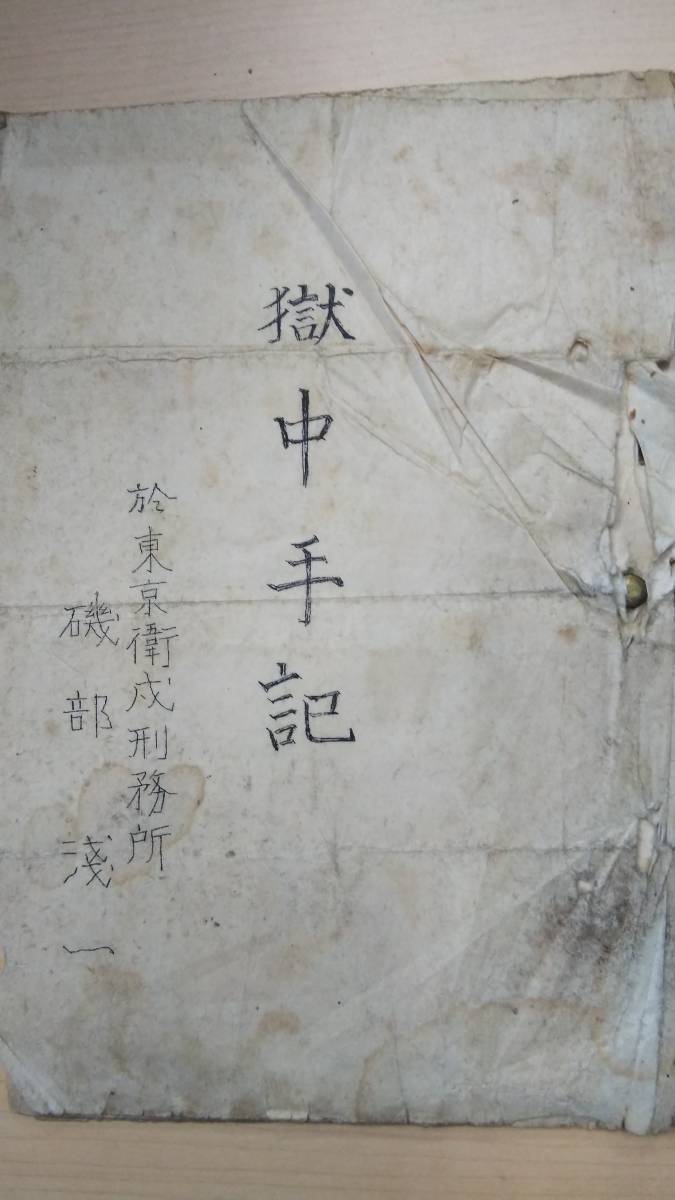 獄中手記
於東京衛戍刑務所
磯部淺一